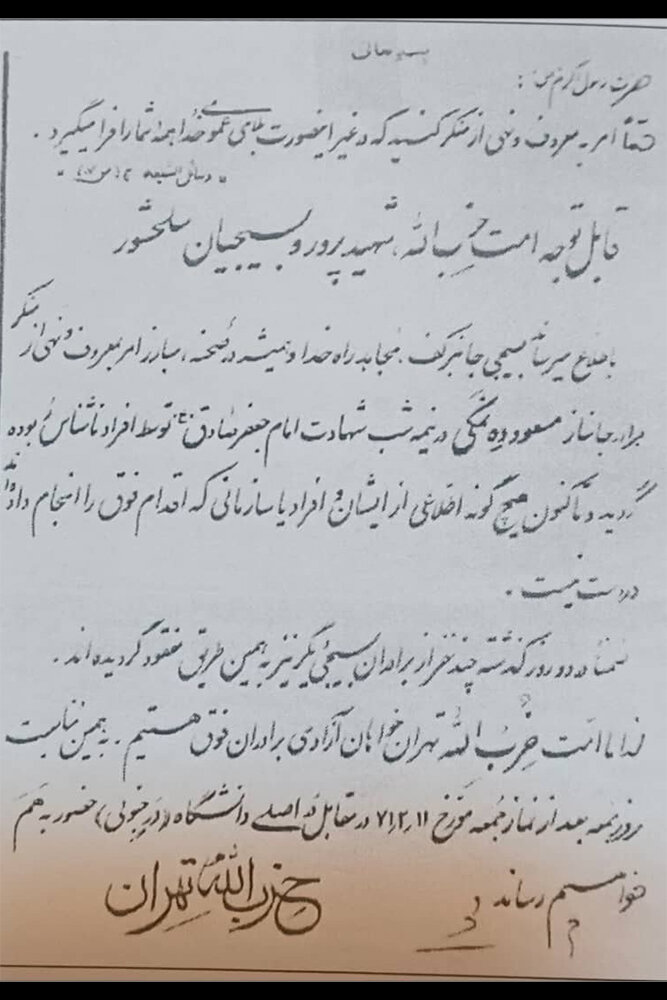 بسمه تعالی
حضرت رسول اکرم (ص) :
حتماً امر به معروف و نهی از منکر کنید که در غیر اینصورت بلای عمومی خدا همه شما را فرا میگیرد .
" وسائل الشیعه ج ۱۱ ص "
قابل توجه امت حزب الله ، شهید پرور و بسیجیان سلحشور
باطلاع میرساند بسیجی جان برکف ، مجاهد راه خدا و همیشه در صحنه ، مبارز امر بمعروف و نهی از منکر
برادر جانباز مسعود ده نمکی در نیمه شب شهادت امام جعفر صادق (ع) توسط افراد ناشناس ربوده
گردید و تاکنون هیچ گونه اطلاعی از ایشان و افراد یا سازمانی که اقدام فوق را انجام داده اند
در دست نیست .
ضمناً در دو روز گذشته چند نفر از برادران بسیجی دیگر نیز به همین طریق مفقود گردیده اند .
لذا ما امت حزب الله تهران خواهان آزادی برادران فوق هستیم . به همین مناسبت
روز جمعه بعد از نماز جمعه مورخ ۷۱،۲،۱۱ در مقابل در اصلی دانشگاه (در جنوبی) حضور به هم
خواهیم رساند
حزب الله تهران